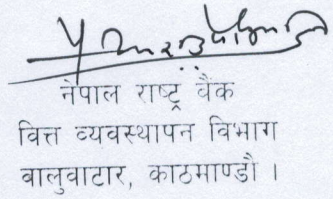 नेपाल राष्ट्र बैंक
वित्त व्यवस्थापन विभाग
बालुवाटार, काठमाण्डौ ।